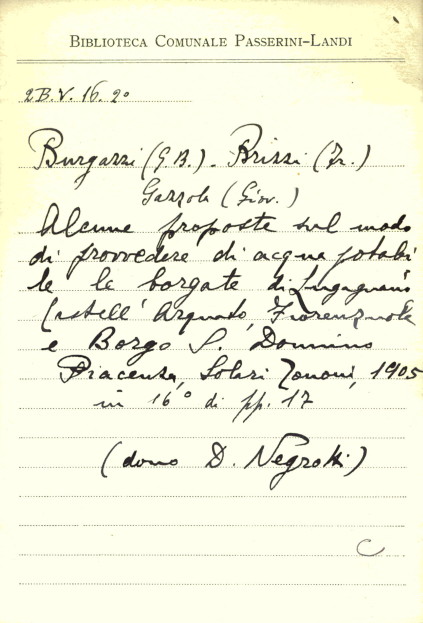 BIBLIOTECA COMUNALE PASSERINI-LANDI
2B.V.16.2º
Burgazzi (G B.) - Brizzi (Fr.)
Gazzola (Giov.)
Alcune proposte sul modo
di provvedere di acqua potabi
le le borgate di Lugagnano
Castell' Arquato, Fiorenzuola
e Borgo S. Donnino
Piacenza, Solari Zanoni, 1905
in 16º di pp. 17
(dono D. Negrotti)
C